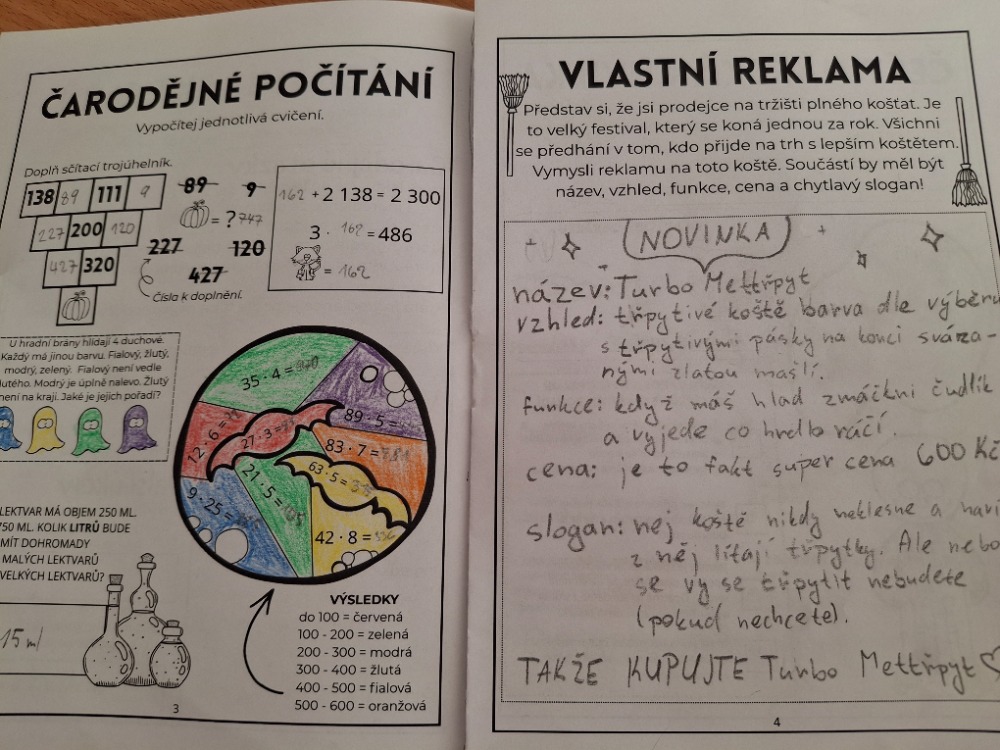 ČARODĚJNÉ POČÍTÁNÍ
Vypočítej jednotlivá cvičení.
Doplň sčítací trojúhelník.
138 89 111 9
227 200 120
427 320
89 9
= ? 747
227 120
427
Čísla k doplnění.
162 + 2 138 = 2 300
3 · 162 = 486
= 162
U hradní brány hlídají 4 duchové.
Každý má jinou barvu. Fialový, žlutý,
modrý, zelený. Fialový není vedle
žlutého. Modrý je úplně nalevo. Žlutý
není na kraji. Jaké je jejich pořadí?
35 · 4 =
89 · 5 =
12 · 6 =
27 · 3 =
83 · 7 =
21 · 5 = 105
63 · 5 =
9 · 25 =
42 · 8 =
LEKTVAR MÁ OBJEM 250 ML.
750 ML. KOLIK LITRŮ BUDE
MÍT DOHROMADY
MALÝCH LEKTVARŮ
VELKÝCH LEKTVARŮ?
15 ml
VÝSLEDKY
do 100 = červená
100 - 200 = zelená
200 - 300 = modrá
300 - 400 = žlutá
400 - 500 = fialová
500 - 600 = oranžová
3
VLASTNÍ REKLAMA
Představ si, že jsi prodejce na tržišti plného košťat. Je
to velký festival, který se koná jednou za rok. Všichni
se předhání v tom, kdo přijde na trh s lepším koštětem.
Vymysli reklamu na toto koště. Součástí by měl být
název, vzhled, funkce, cena a chytlavý slogan!
NOVINKA
název: Turbo Mettřpyt
vzhled: třpytivé koště barva dle výběru
s třpytivými pásky na konci sváza-
nými zlatou mašlí.
funkce: když máš hlad zmáčkni čudlík
a vyjede co hrdlo ráčí.
cena: je to fakt super cena 600 Kč
slogan: nej koště nikdy neklesne a navi
z něj lítají třpytky. Ale nebo
se vy se třpytit nebudete
(pokud nechcete).
TAKŽE KUPUJTE Turbo Mettřpyt ♡
4